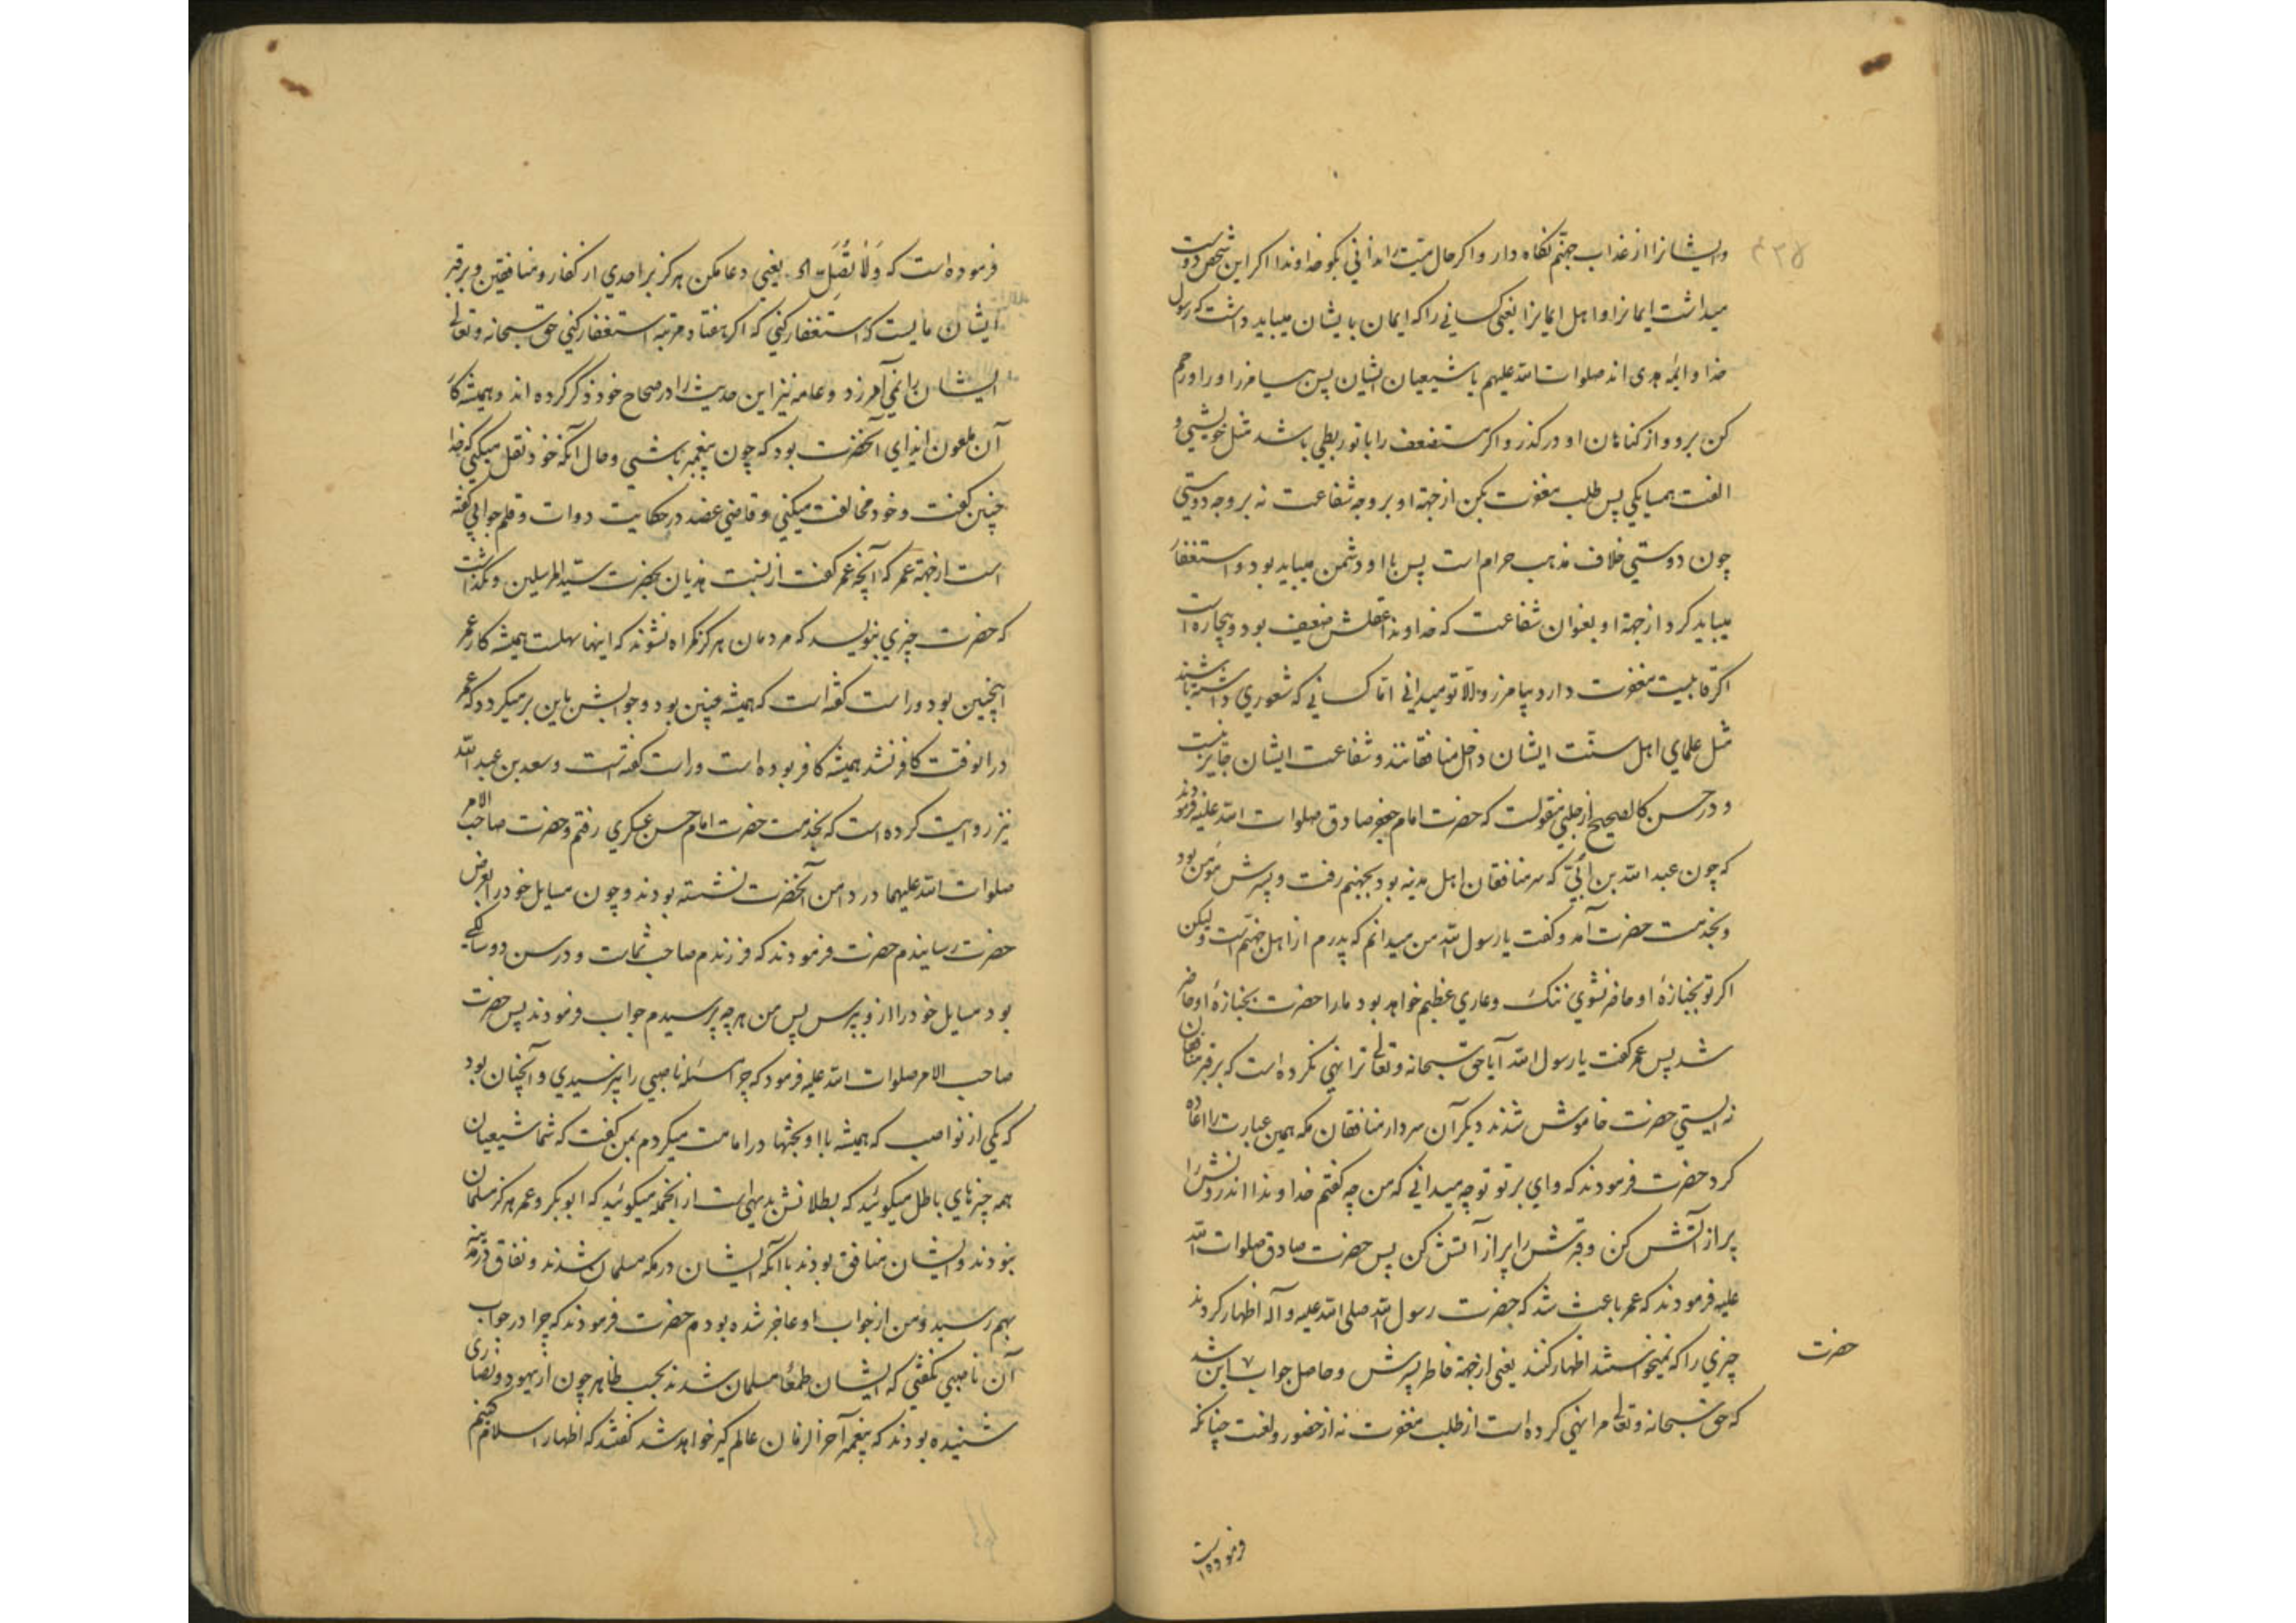 وایشانرا از عذاب جهنم نکاه دار و اکر حال میت را ندانی بکو خداوندا اکر این شخص دوست
میداشت ایمانرا و اهل ایمانرا یعنی کسانی را که ایمان بایشان میباید داشت که رسول
خدا و ائمه هدی اند صلوات الله علیهم یا شیعیان ایشان پس بیامرز او را و رحم
کن برو و از کناهان او درکذر و اکر مستضعف را با تو ربطی باشد مثل خویشی و
الفت همسایکی پس طلب مغفرت بکن از جهة او بر وجه شفاعت نه بر وجه دوستی
چون دوستی خلاف مذهب حرام است پس با او دشمن میباید بود و استغفار
میباید کرد از جهة او بعنوان شفاعت که خداوندا عقلش ضعیف بود و بیچاره است
اکر قابلیت مغفرت دارد بیامرز والا تو میدانی اما کسانی که شعوری داشته باشند
مثل علمای اهل سنت ایشان داخل منافقانند و شفاعت ایشان جایز نیست
و در حسن کالصحیح از حلبی منقولست که حضرت امام جعفر صادق صلوات الله علیه فرمودند
که چون عبد الله بن ابّی که سر منافقان اهل مدینه بود بجهنم رفت و پسرش مؤمن بود
و بخدمت حضرت آمد و کفت یا رسول الله من میدانم که پدرم از اهل جهنم است و لیکن
اکر تو بجنازهٔ او حاضر نشوی ننک و عاری عظیم خواهد بود ما را حضرت بجنازهٔ او حاضر
شد پس عمر کفت یا رسول الله آیا حق سبحانه و تعالی ترا نهی نکرده است که بر قبر منافقان
نه ایستی حضرت خاموش شدند دیکر آن سردار منافقان مکه همین عبارت را اعاده
کرد حضرت فرمودند که وای بر تو تو چه میدانی که من چه کفتم خداوندا اندرونش را
پر از آتش کن و قبرش را پر از آتش کن پس حضرت صادق صلوات الله
علیه فرمودند که عمر باعث شد که حضرت رسول الله صلی الله علیه و آله اظهار کردند
چیزی را که نمیخواستند اظهار کنند یعنی از جهة خاطر پسرش و حاصل جواب این شد
حضرت
که حق سبحانه و تعالی مرا نهی کرده است از طلب مغفرت نه از حضور و لعنت چنانکه
فرموده است
فرموده است که وَلا تُصَلِّ اه یعنی دعا مکن هرکز بر احدی از کفار و منافقین و بر قبر
ایشان مایست که استغفار کنی که اکر هفتاد مرتبه استغفار کنی حق سبحانه و تعالی
ایشان را نمی آمرزد و عامه نیز این حدیث را در صحاح خود ذکر کرده اند و همیشه کار
آن ملعون ایذای آنحضرت بود که چون پیغمبر باشی و حال آنکه خود نقل میکنی که خدا
چنین کفت و خود مخالفت میکنی و قاضی عضد در حکایت دوات و قلم جوابی کفته
است از جهة عمر که آنچه عمر کفت از نسبت هذیان بحضرت سید المرسلین و نکذاشت
که حضرت چیزی بنویسد که مردمان هرکز کمراه نشوند که اینها سهلست همیشه کار عمر
اینچنین بود و راست کفته است که همیشه چنین بود و جوابش باین بر میکردد که عمر
در انوقت کافر نشد همیشه کافر بوده است و راست کفته است و سعد بن عبد الله
نیز روایت کرده است که بخدمت حضرت امام حسن عسکری رفتم و حضرت صاحب الامر
صلوات الله علیهما در دامن آنحضرت نشسته بودند و چون مسایل خود را بعرض
حضرت رسانیدم حضرت فرمودند که فرزندم صاحب شماست و در سن دو سالکی
بود مسایل خود را از و بپرس پس من هر چه پرسیدم جواب فرمودند پس حضرت
صاحب الامر صلوات الله علیه فرمود که چرا مسئله ناصبی را نپرسیدی و آنچنان بود
که یکی از نواصب که همیشه با او بحثها در امامت میکردم بمن کفت که شما شیعیان
همه چیزهای باطل میکوئید که بطلانش بدیهی است از انجمله میکوئید که ابو بکر و عمر هرکز مسلمان
نبودند و ایشان منافق بودند با آنکه ایشان در مکه مسلمان شدند و نفاق در مدینه
بهم رسید و من از جواب او عاجز شده بودم حضرت فرمودند که چرا در جواب
آن ناصبی نکفتی که ایشان طمعًا مسلمان شدند بحسب ظاهر چون از یهود و نصاری
شنیده بودند که پیغمبر آخر الزمان عالم کیر خواهد شد کفتند که اظهار اسلام کنیم